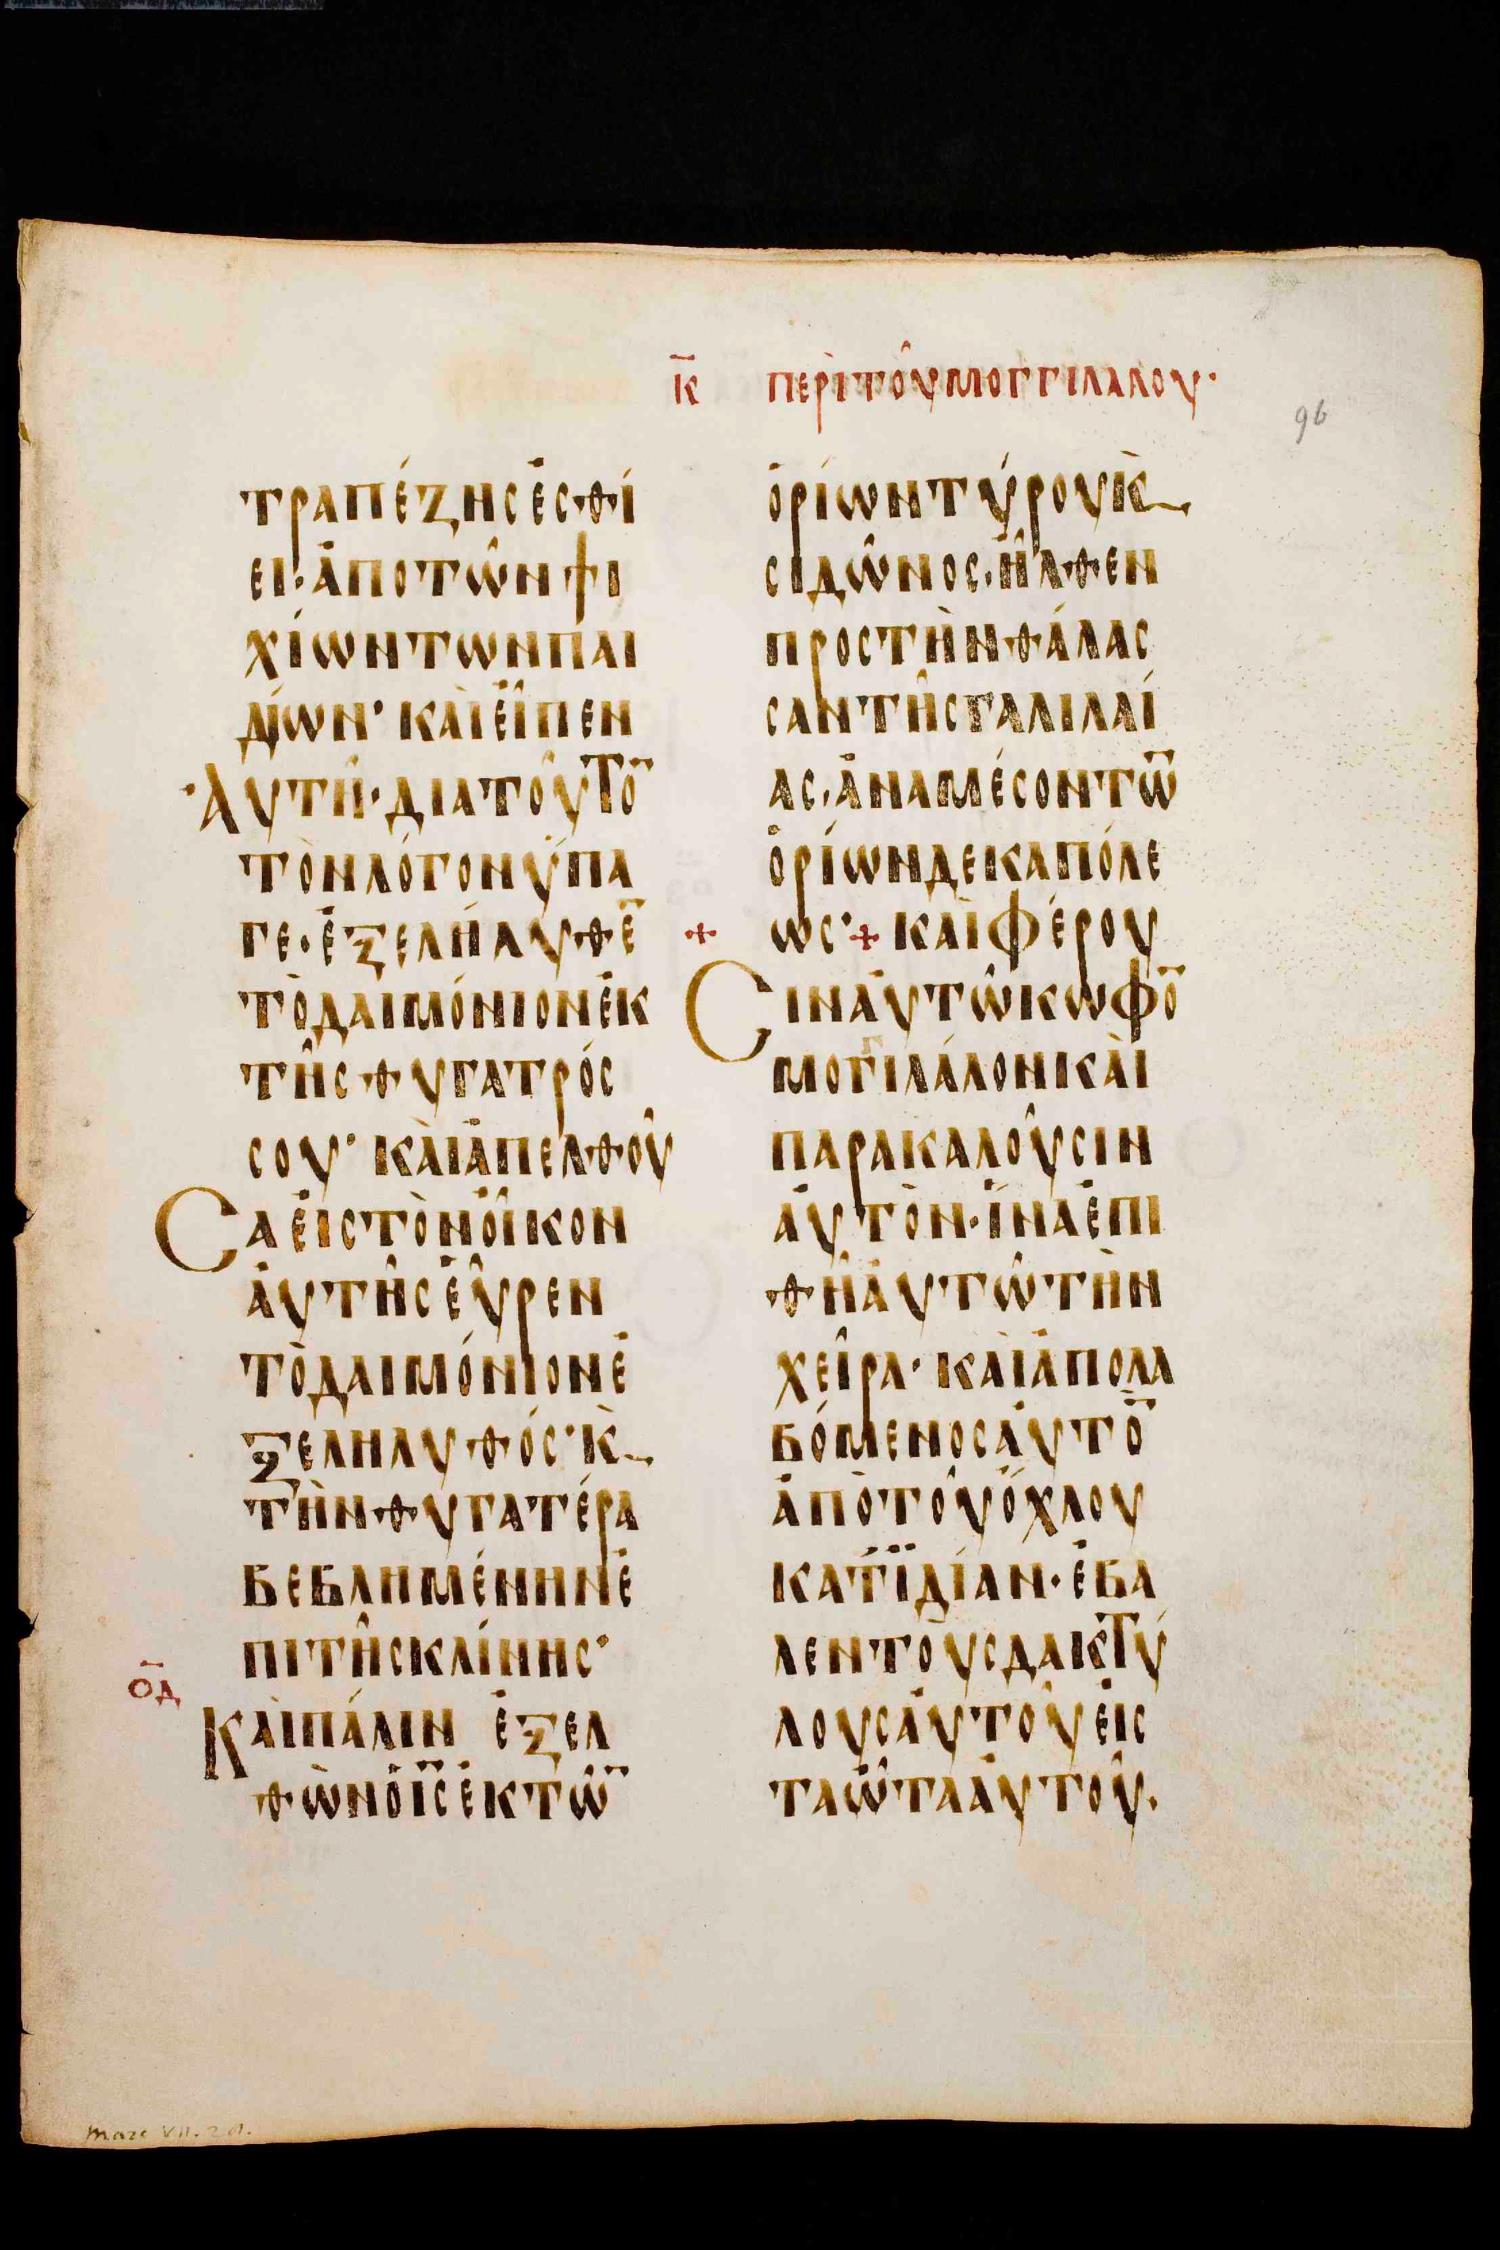 Κ̄ ΠΕΡῚΤΟΥ͂ΜΟΓΓΙΛΑΛΟΥ·
96
ΤΡΑΠΈΖΗΣἘΣΘΊ
ΕΙ·ἈΠΟΤΩ͂ΝΨΙ
ΧΊΩΝΤΩΝΠΑΙ
ΔΊΩΝ· ΚΑῚΕἾΠΕΝ
ἈΥΤΗ͂·ΔΙΑΤΟΥ͂ΤΟ̅
ΤῸΝΛΌΓΟΝΫΠΑ
ΓΕ·ἘΞΕΛΉΛΥΘΕ̅
ΤῸΔΑΙΜΌΝΙΟΝἘΚ
ΤΗ͂ΣΘΥΓΑΤΡΌΣ
ΣΟΥ· ΚΑῚἈΠΕΛΘΟΥ͂
ΣΑἘΙΣΤῸΝΟἾΚΟΝ
ἈΥΤΗ͂ΣΕΥ̓͂ΡΕΝ
ΤῸΔΑΙΜΌΝΙΟΝἘ
ΞΕΛΗΛΥΘΌΣ·Κ̀
ΤῊΝΘΥΓΑΤΈΡΑ
ΒΕΒΛΗΜΈΝΗΝἘ
ΠΙΤΗ͂ΣΚΛΊΝΗΣ·
ΟΔ̅
ΚΑῚΠΆΛΙΝ ἘΞΕΛ
ΘῺΝὉΙ̅Σ̅ἘΚΤΩ̅͂
ὉΡΊΩΝΤΎΡΟΥΚ̀
ΣΙΔΩ͂ΝΟΣ·ἮΛΘΕΝ
ΠΡΟΣΤῊΝΘΆΛΑΣ
ΣΑΝΤΗ͂ΣΓΑΛΙΛΑΊ
ΑΣ·ἈΝΑΜΈΣΟΝΤΩ̅
ὉΡΊΩΝΔΕΚΑΠΌΛΕ
ΩΣ·+ ΚΑῚΦΈΡΟΥ
ΣΙΝἈΥΤΩ͂ΚΩΦΟ̅
ΜΟΓΓΙΛΆΛΟΝΚΑῚ
ΠΑΡΑΚΑΛΟΥ͂ΣΙΝ
ἈΥΤῸΝ·ἽΝΑἘΠΙ
ΘΗ͂ἈΥΤΩ͂ΤῊΝ
ΧΕΙ͂ΡΑ· ΚΑῚἈΠΟΛΑ
ΒΌΜΕΝΟΣἈΥΤῸ̅
ἈΠῸΤΟΥ͂ὌΧΛΟΥ
ΚΑΤΪ́ΔΊΑΝ·ἜΒΑ
ΛΕΝΤΟῪΣΔΑΚΤΎ
ΛΟΥΣἈΥΤΟΥ͂ἘΙΣ
ΤΑὮΤΑἈΥΤΟΥ͂·
Marc VII. 29.